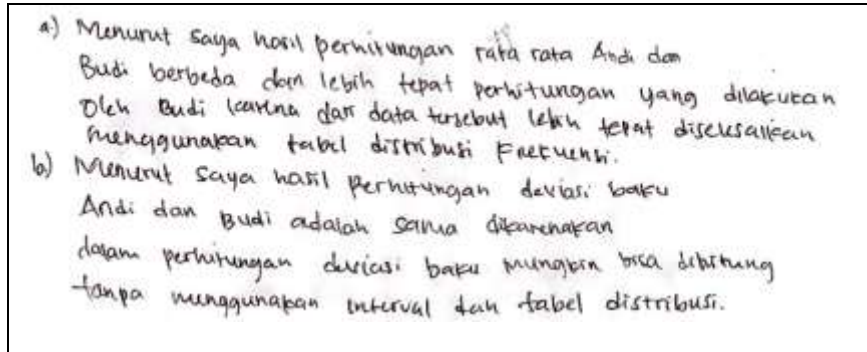 a.) Menurut saya hasil perhitungan rata rata Andi dan
Budi berbeda dan lebih tepat perhitungan yang dilakukan
Oleh Budi karena dari data tersebut lebih tepat diselesaikan
menggunakan tabel distribusi Frekuensi.
b) Menurut saya hasil perhitungan deviasi baku
Andi dan Budi adalah sama dikarenakan
dalam perhitungan deviasi baku mungkin bisa dihitung
tanpa menggunakan interval dan tabel distribusi.